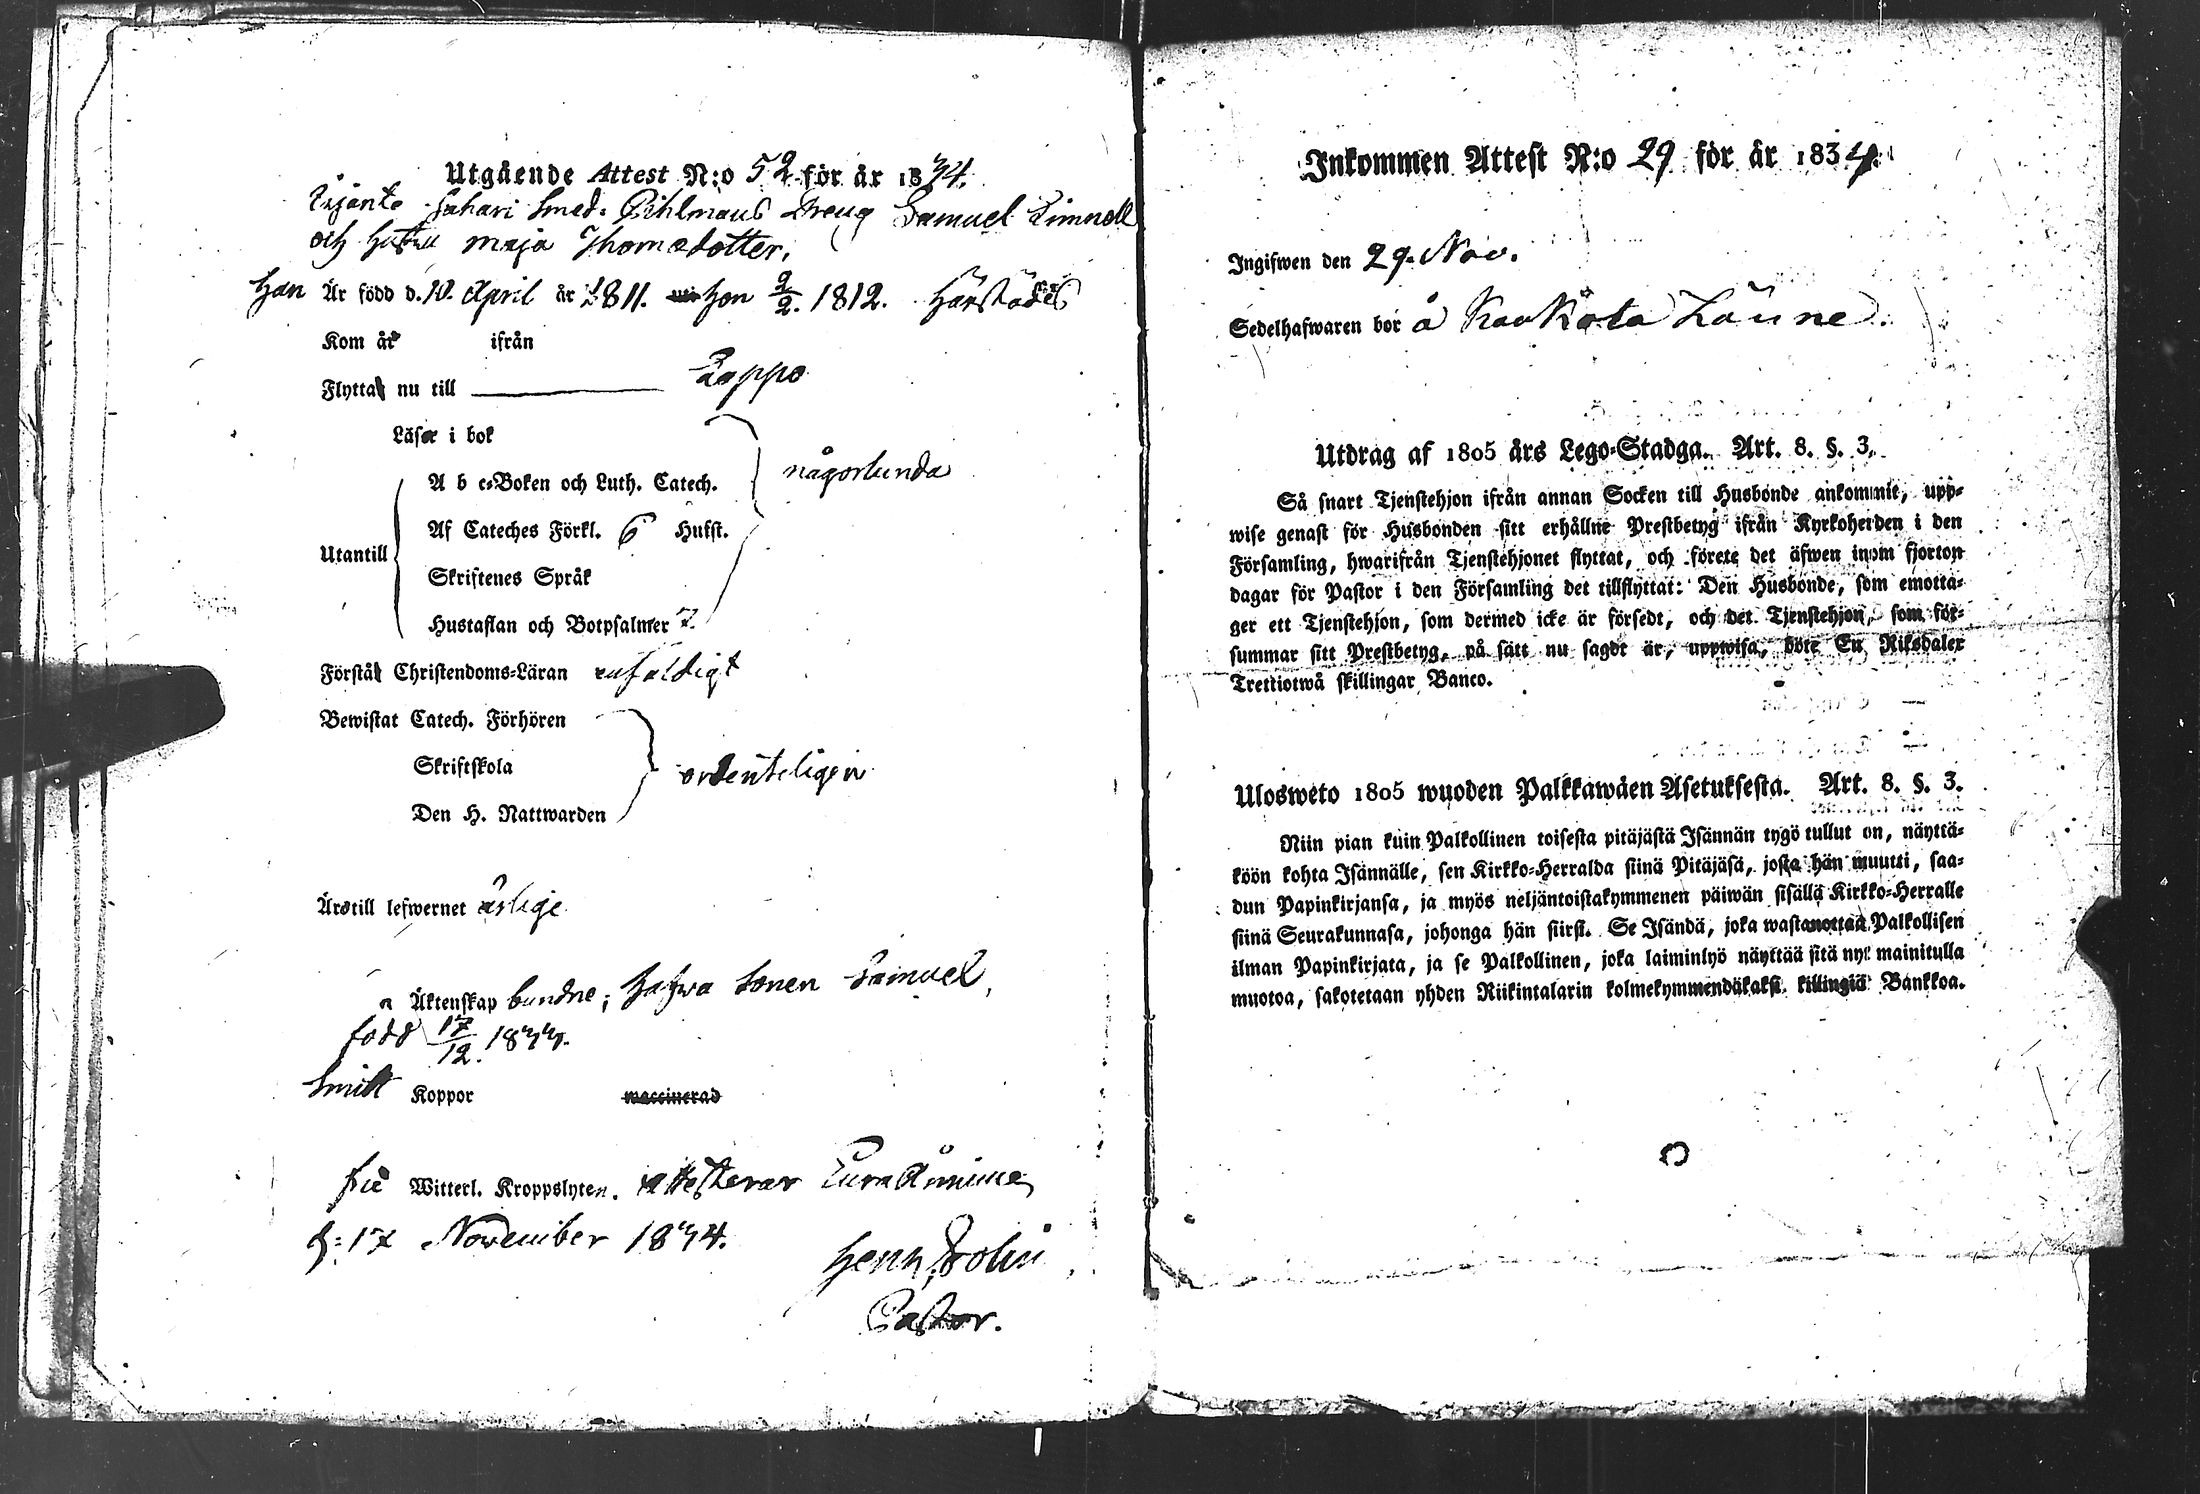 Utgående Attest N:o 52 för år 1834.
Sahari Smed. Pihlmans Dreng Samuel Limnell
och hustru Maja Thomædotter,
Han Är född d. 10. April år 1811. hon 2/2. 1812. härstädes
Kom år ifrån
Flytta nu till Lappo
Läser i bok
A b c-Boken och Luth. Catech. någorlunda
Af Cateches Förkl. 6 Hufst.
Utantill
Skriftenes Språk
Hustaflan och Botpsalmer 7.
Förstå Christendoms-Läran enfaldigt
Bewistat Catech. Förhören
Skriftskola ordenteligen
Den H. Nattwarden
Äro till lefwernet ärlige
Äktenskap bundne; hafwa sonen Samuel,
född 17/12. 1833.
Smitt Koppor waccinerad
fria Witterl. Kroppslyten. attesterar Eura Åminne
d: 17 November 1834.
Henr. Prolin
Pastor.
Inkommen Attest N:o 29 för år 1834.
Ingifwen den 29. Nov.
Sedelhafwaren bor å Kaukola Läune.
Utdrag af 1805 års Lego-Stadga. Art. 8. §. 3.
Så snart Tjenstehjon ifrån annan Socken till Husbonde ankommit, upp-
wise genast för Husbonden sitt erhållne Prestbetyg ifrån Kyrkoherden i den
Församling, hwarifrån Tjenstehjonet flyttat, och förete det äfwen inom fjorton
dagar för Pastor i den Församling det tillflyttat: Den Husbonde, som emotta-
ger ett Tjenstehjon, som dermed icke är försedt, och det Tjenstehjon, som för-
summar sitt Prestbetyg, på sätt nu sagdt är, uppwisa, böte En Riksdaler
Trettiotwå skillingar Banco.
Ulosweto 1805 wuoden Palkkawäen Asetuksesta. Art. 8. §. 3.
Niin pian kuin Palkollinen toisesta pitäjästä Isännän tygö tullut on, näyttä-
köön kohta Isännälle, sen Kirkko-Herralda siinä Pitäjäsä, josta hän muutti, saa-
dun Papinkirjansa, ja myös neljäntoistakymmenen päiwän sisällä Kirkko-Herralle
siinä Seurakunnasa, johonga hän siirsi. Se Isändä, joka wastanottaa Palkollisen
ilman Papinkirjata, ja se Palkollinen, joka laiminlyö näyttää sitä nyt mainitulla
muotoa, sakotetaan yhden Riikintalarin kolmekymmendäkaksi killingiä Bankkoa.